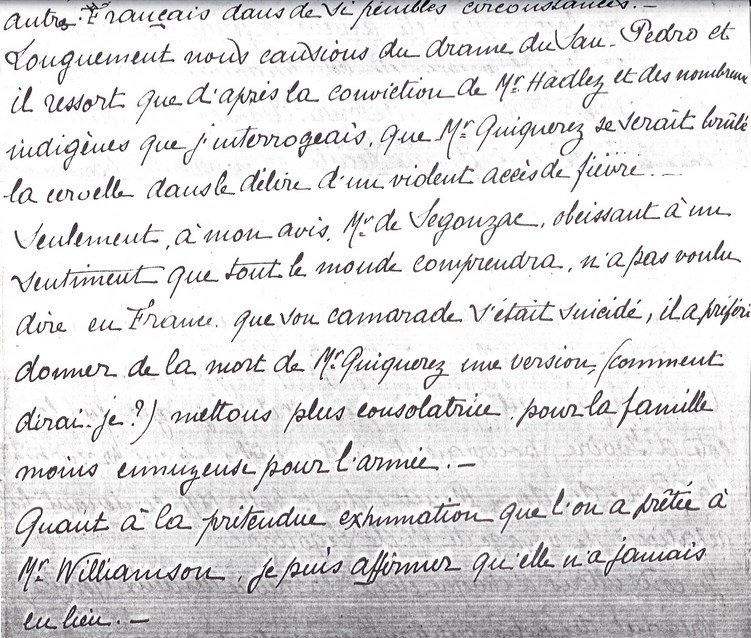 autre Français dans de si pénibles circonstances. —
Longuement nous causions du drame du San-Pedro et
il ressort que d'après la conviction de Mr Hadlez et des nombreux
indigènes que j'interrogeais, que Mr Quiquerez se serait brûlé
la cervelle dans le délire d'un violent accès de fièvre. —
Seulement, à mon avis, Mr de Segonzac, obéissant à un
sentiment que tout le monde comprendra, n'a pas voulu
dire en France que son camarade s'était suicidé, il a préféré
donner de la mort de Mr Quiquerez une version, (comment
dirai-je?) mettons plus consolatrice pour la famille
moins ennuyeuse pour l'armée. —
Quant à la prétendue exhumation que l'on a prêtée à
Mr Williamson, je puis affirmer qu'elle n'a jamais
eu lieu. —